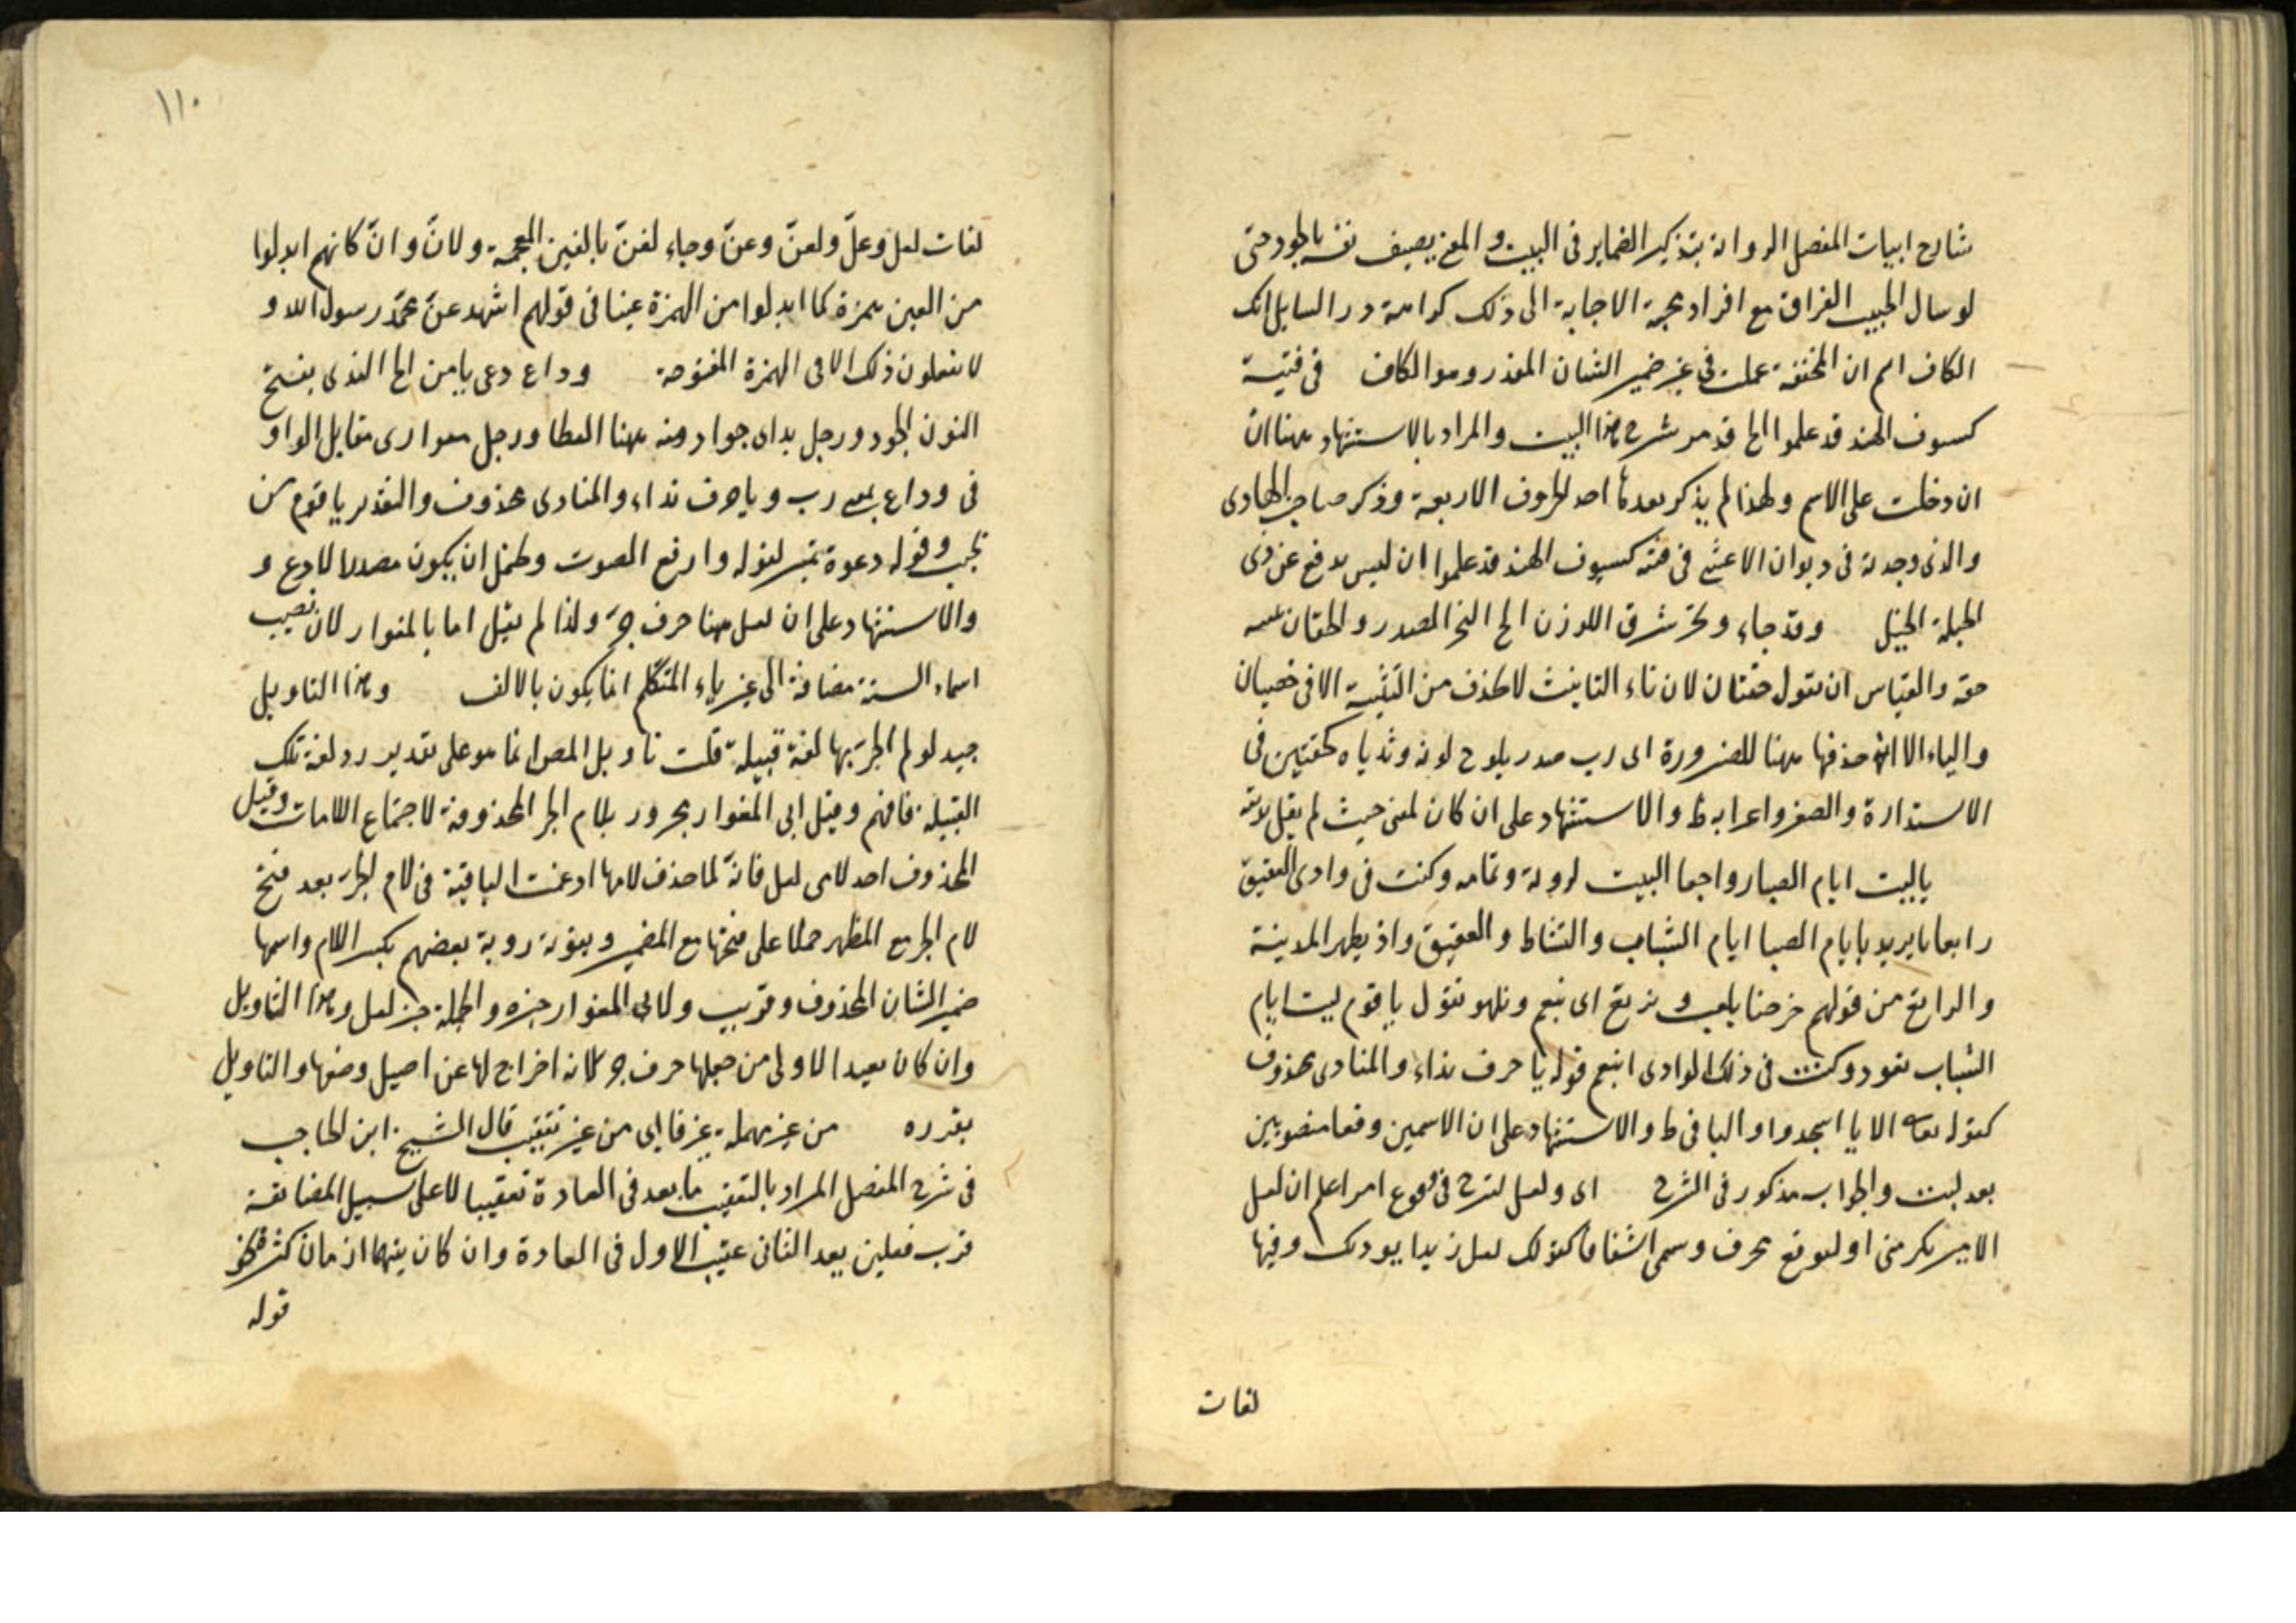 شارح ابيات المفصل الرواية بتذكير الضماير فى البيت و المعنى يصف نفسه بالجود حتى
لو سال الحبيب الفراق مع افراد محبة الاجابة الى ذلك كرامة رد السايل انك
الكاف اسم ان المخففة عملت فى غير ضمير الشان المقدر وهو الكاف فى فتية
كسيوف الهند قد علموا الخ قد مر شرح هذا البيت والمراد بالاستشهاد ههنا ان
ان دخلت على الاسم ولهذا لم يذكر بعدها احد الحروف الاربعة وذكر صاحب الهادى
والذى وجدته فى ديوان الاعشى فى فتية كسيوف الهند قد علموا ان ليس يدفع عن ذى
الحيلة الحيل وقد جاء ونحر مشرق اللون الخ النحر الصدر والحقان تثنية
حقة والقياس ان يقول حقتان لان تاء التانيث لا تحذف من التثنية الا فى خصيان
والياء الا انه حذفها ههنا للضرورة اى رب صدر يلوح لونه وثدياه كحقتين فى
الاستدارة والصغر واعرابه ظ والاستشهاد على ان كان لغى حيث لم يقل ثدييه
ياليت ايام الصبا رواجعا البيت لروبة وتمامه وكنت فى وادى العقيق
رابعا يريد بايام الصبا ايام الشباب والنشاط و العقيق واد بظهر المدينة
والراتع من قولهم خرجنا نلعب و نرتع اى ننعم ونلهو نقول يا قوم ليت ايام
الشباب تعود وكنت فى ذلك الوادى انعم قوله يا حرف نداء والمنادى محذوف
كقوله تعالى الا يا اسجدوا والباقى ظ والاستشهاد على ان الاسمين وقعا منصوبين
بعد ليت والجواب مذكور فى الشرح اى ولعل لترج فى وقوع امر اعلم ان لعل
الامير يكرمنى او لتوقع مخوف وسمى اشفاقا كقولك لعل زيدا يودك وفيها
لغات
١١٠
لغات لعل وعلّ ولعنّ وعنّ وجاء لغنّ بالغين المعجمة ولانّ وانّ كانهم ابدلوا
من العين همزة كما ابدلوا من الهمزة عينا فى قولهم اشهد عنّ محمّدا رسول الله و
لا يفعلون ذلك الا فى الهمزة المفتوحة وداع دعى يا من الخ الندى بفتح
النون الجود ورجل ند اى جواد ومنه ههنا العطا ورجل مغوار اى مقاتل الواو
فى وداع بمعنى رب و يا حرف نداء والمنادى محذوف والتقدير يا قوم من
يجب وقوله دعوة تميز لقوله وارفع الصوت ويحتمل ان يكون مصدرا لادع و
والاستشهاد على ان لعل ههنا حرف جرّ ولذا لم يقل ابا المغوار لان نصب
اسماء الستة مضافة الى غير ياء المتكلم انما يكون بالالف وهذا التاويل
جيد لو لم الجرّ بها لغة قبيلة قلت تاويل المص انما هو على تقدير رد لغة تلك
القبيلة فافهم وقيل ابى المغوار مجرور بلام الجر المحذوفة لاجتماع اللامات وقيل
المحذوف احد لامى لعل فانّه لما حذف لامها ادغمت الباقية فى لام الجرّ بعد فتح
لام الجر مع المظهر حملا على فتحها مع المضمر ويقويه روية بعضهم بكسر اللام واسمها
ضمير الشان المحذوف وقريب ولابى المغوار خبره والجملة خبر لعل وهذا التاويل
وان كان بعيدا الاولى من جعلها حرف جر لانه اخراج لها عن اصل وضعها والتاويل
يقرره من غير مهملة غير فا اى من غير تعقيب قال الشيخ ابن الحاجب
فى شرح المفصل المراد بالتعقيب ما يعد فى العادة تعقيبا لا على سبيل المضايقة
فرب فعلين يعد الثانى عقيب الاول فى العادة وان كان بينهما ازمان كثيرة نحو
قوله